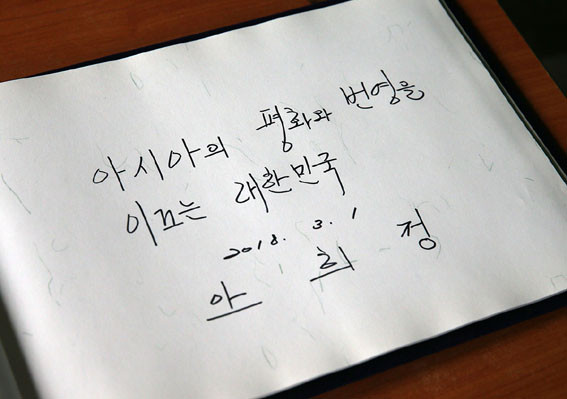 아시아의 평화와 번영을
이끄는 대한민국
2018. 3. 1
안 희 정